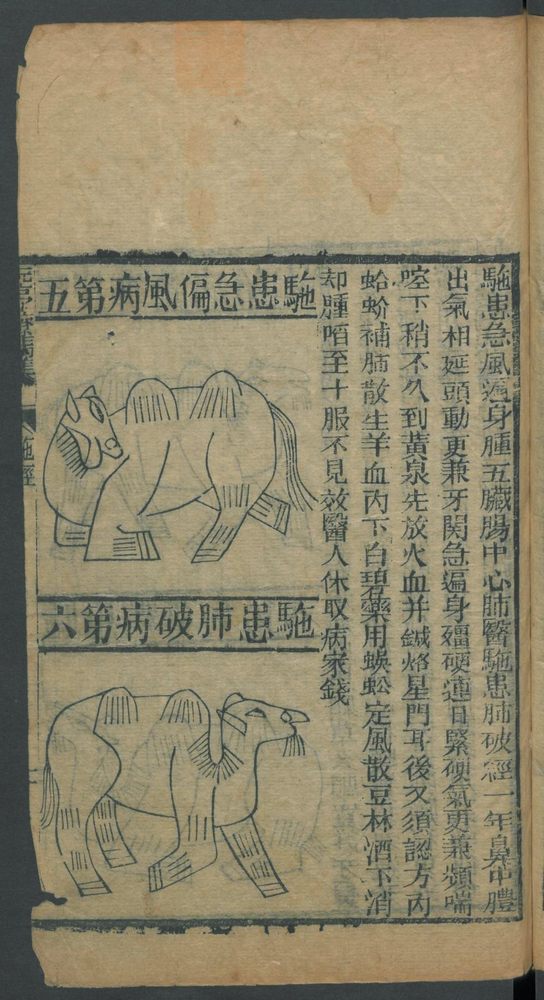 駞患急風遍身腫五臟腸中心肺醫駞患肺破經一年鼻中膿
出氣相延頭動更兼牙関急遍身殭硬連日緊硬氣更兼頻喘
啌下稍不久到黃泉先放火血并鍼烙星門耳後又須認方內
蛤蚧補肺散生羊血內下白礬藥用蜈蚣定風散豆林酒下消
却腫 至十服不見效醫人休取病家錢
駞患急偏風病第五
駞患肺破病第六
元亨療馬集
駞經